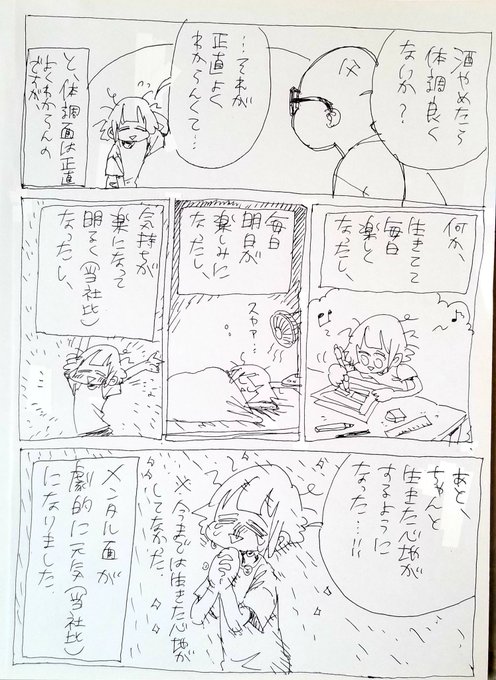 酒やめたら
体調良く
ないか？
父
…それが
正直よく
わからんくて…
と、体調面は正直
よくわからんの
ですが、
何か、
生きてて
毎日
楽しく
なったし、
毎日
明日が
楽しみに
なったし、
スゥァ…
気持ちが
楽になって
明るく（当社比）
なったし、
あと、
ちゃんと
生きた心地が
するように
なった…!!
※今までは生きた心地が
してなかった
メンタル面が
劇的に元気（当社比）
になりました